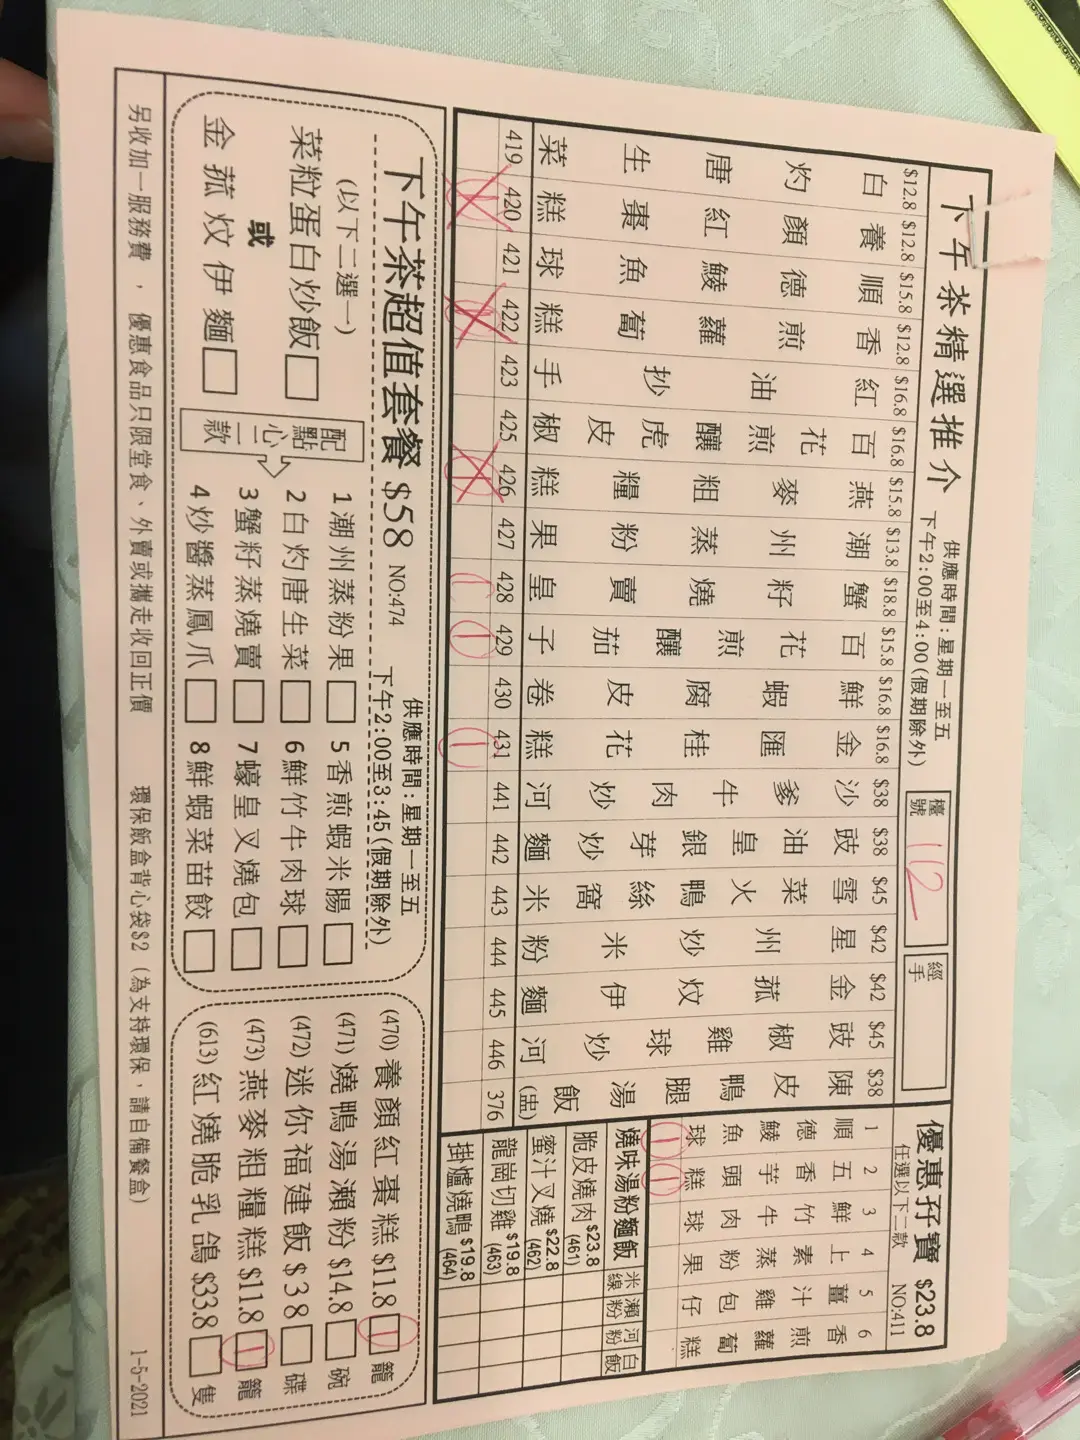 下午茶精選推介
供應時間:星期一至五
下午2:00至4:00(假期除外)
檯號 112
經手
$12.8 白灼唐生菜 419
$12.8 養顏紅棗糕 420
$15.8 順德鯪魚球 421
$12.8 香煎蘿蔔糕 422
$16.8 紅油抄手 423
$16.8 百花煎釀虎皮椒 425
$15.8 燕麥粗糧糕 426
$13.8 潮州蒸粉果 427
$18.8 蟹籽燒賣皇 428
$15.8 百花煎釀茄子 429 1
$16.8 鮮蝦腐皮卷 430
$16.8 金匯桂花糕 431 1
$38 沙爹牛肉炒河 441
$38 豉油皇銀芽炒麵 442
$45 雪菜火鴨絲窩米 443
$42 星州炒米粉 444
$42 金菰炆伊麵 445
$45 豉椒雞球炒河 446
$38 陳皮鴨腿湯飯(盅) 376
優惠孖寶 $23.8
任選以下二款 NO:411
1 順德鯪魚球 1
2 五香芋頭糕 1
3 鮮竹牛肉球
4 上素蒸粉果
5 薑汁雞包仔
6 香煎蘿蔔糕
燒味湯粉麵飯 米線 瀨粉 河粉 白飯
脆皮燒肉 $23.8 (461)
蜜汁叉燒 $22.8 (462)
龍崗切雞 $19.8 (463)
掛爐燒鴨 $19.8 (464)
下午茶超值套餐 $58 NO:474
供應時間:星期一至五
下午2:00至3:45(假期除外)
(以下二選一)
菜粒蛋白炒飯
或
金菰炆伊麵
配點心二款
1 潮州蒸粉果
2 白灼唐生菜
3 蟹籽蒸燒賣
4 炒醬蒸鳳爪
5 香煎蝦米腸
6 鮮竹牛肉球
7 蠔皇叉燒包
8 鮮蝦菜苗餃
(470) 養顏紅棗糕 $11.8 1 籠
(471) 燒鴨湯瀨粉 $14.8 碗
(472) 迷你福建飯 $38 碟
(473) 燕麥粗糧糕 $11.8 1 籠
(613) 紅燒脆乳鴿 $33.8 隻
另收加一服務費，優惠食品只限堂食、外賣或攜走收回正價 環保飯盒背心袋$2 (為支持環保，請自備餐盒) 1-5-2021